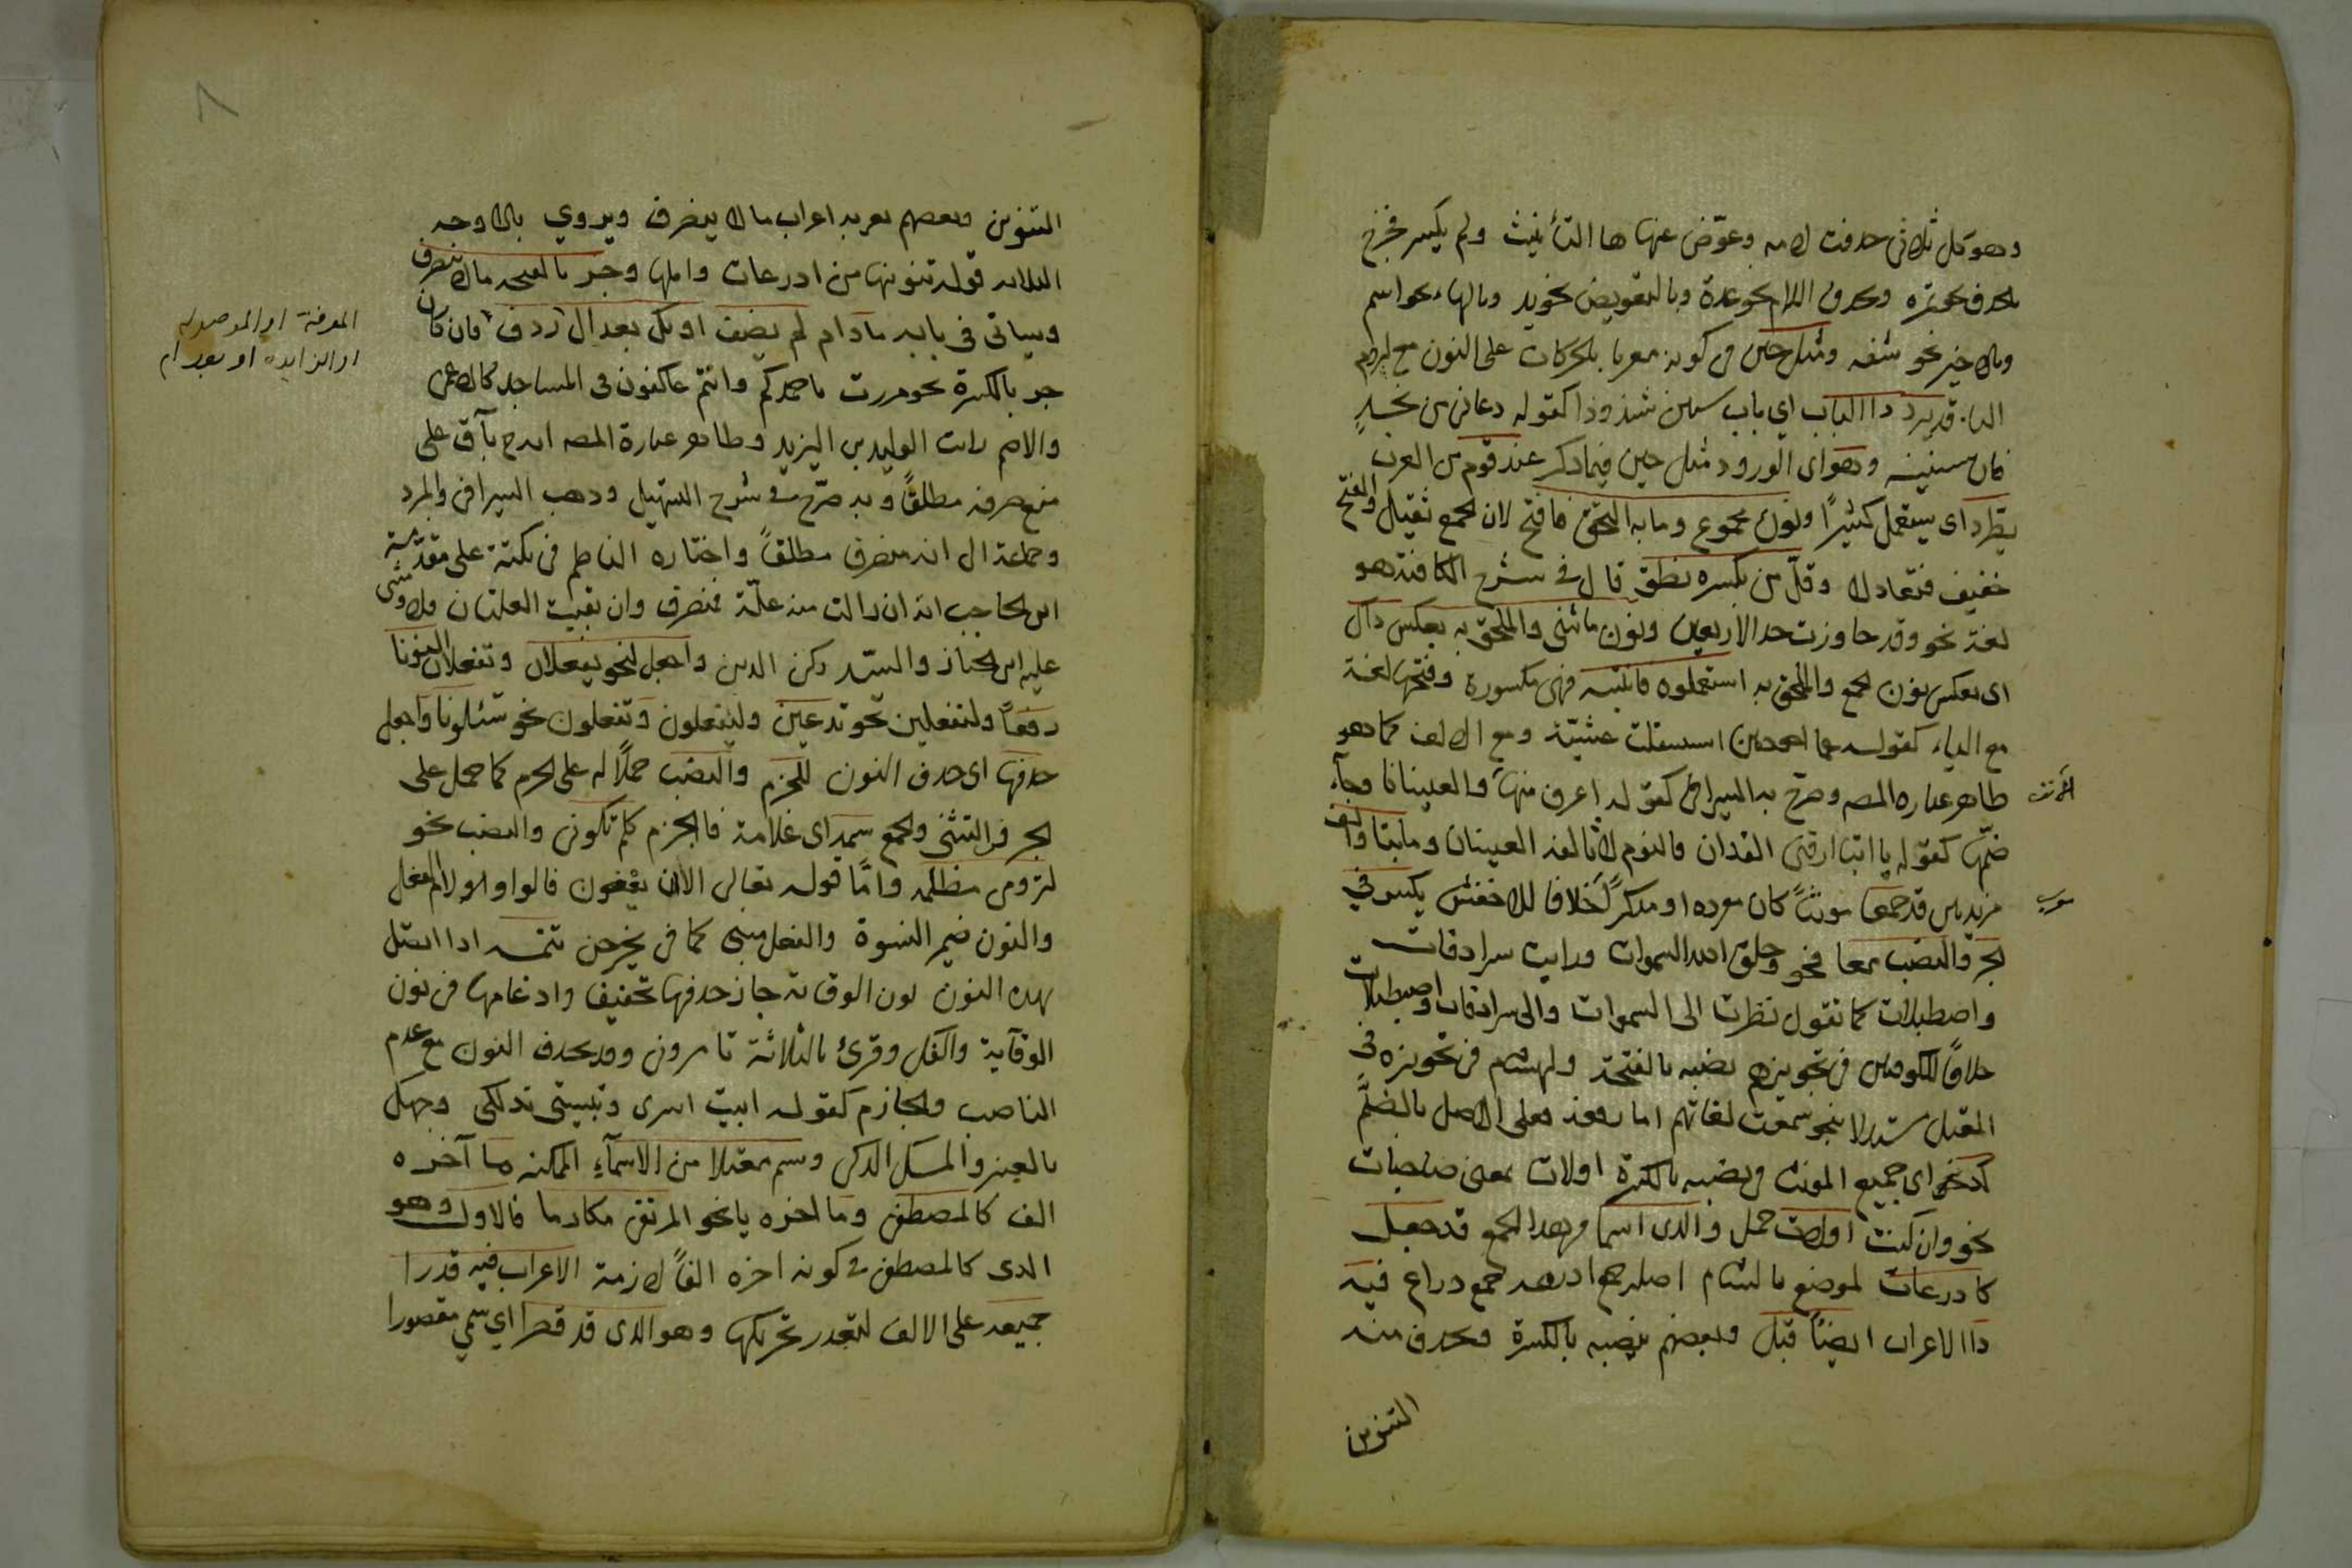 وهو كل ثلاثي حذفت لامه وعوّض عنها ها التأنيث ولم يكسر فخرج
بالحذف نحو تمره وبحذف اللام نحو عدة وبالتعويض نحو يد وبالهاء نحو اسم
وبالاخير نحو شفه ومثل حين في كونه معربا بالحركات على النون مع لزوم
الياء قد يرد ذا الباب اي باب سنين شذوذا كقوله دعاني من نجد
فان سنينه وهو اى الورود مثل حين فيما ذكر عند قوم من العرب
يطرد اى يستعمل كثيرًا ونون مجموع وما به التحق فافتح لان الجمع ثقيل والفتح
خفيف فتعادلا وقلّ من بكسره نطق قال في شرح الكافية هو
لغة نحو وقد جاوزت حد الاربعين ونون ما ثني والملحق به بعكس ذاك
اى بعكس نون الجمع والملحق به استعملوه فانتبه فهى مكسورة وفتحها لغة
مع الياء كقوله على احوذيين استقلت عشيّة ومع الالف كما هو
ظاهر عباره المصـ وصرّح به السيرافى كقوله اعرف منها والعينانا وجآء
ضمّها كقوله يا ابتا ارقنى القذان فالنوم لا تالفه العينان وما بتا والف
مزيدين قد جمعا مونثًا كان مفرده او مذكرًا خلافا للاخفش يكسر في
الجر والنصب معا نحو وخلق الله السموات ورايت سرادقات
واصطبلات كما تقول نظرت الى السموات والى سرادقات واصطبلات
خلافًا للكوفيين فى تجويزهم نصبه بالفتحة ولهشام فى تجويزه فى
المعتل مستدلا بنحو سمعت لغاتهم اما رفعه فعلى الاصل بالضمّ
كذخ اى جميع المونث فى نصبه بالكسرة اولات بمعنى صاحبات
نحو وان كنت اولات حمل والذى اسما من هذا الجمع قد جعل
كاذرعات لموضع بالشام اصله جمع اذرعه جمع ذراع فيه
ذا الاعراب ايضًا قبل وبعضهم ينصبه بالكسرة ويحذف منه
التنوين
٨
التنوين وبعضهم يعربه اعراب مالا ينصرف ويروي بالاوجه
الثلاثه قوله تنورتها من اذرعات واهلها وجر بالفتحه مالا ينصرف
وسياتى فى بابه مآدام لم يضف او يك بعد ال ردف فان كان
جر بالكسرة نحو مررت باحمدكم وانتم عاكفون فى المساجد كالاعمى
والاصم رايت الوليد بن اليزيد وظاهر عبارة المصـ انه ح باق على
منع صرفه مطلقًا وبه صرّح في شرح التسهيل وذهب السيرافى والمبرد
وجماعة الى انه منصرف مطلقًا واختاره الناظم فى نكته على مقدمة
ابن الحاجب انه ان زالت منه علّة فمنصرف وان بقيت العلتان فلا ومشى
عليه ابن الخباز والسيّد ركن الدين واجعل لنحو يفعلان وتفعلان النونا
رفعًا ولتفعلين نحو تدعين وليفعلون وتفعلون نحو تسئلونا واجعل
حذفها اى حذف النون للجزم والنصب حملًا له على الجزم كما حمل على
الجر فى التثنى والجمع سمه اى علامة فالجزم كلم تكونى والنصب نحو
لترومى مظلمه وامّا قوله تعالى الا ان يعفون فالواو لام الفعل
والنون ضمير النسوة والفعل مبنى كما فى يخرجن تتمه اذا اتصل
بهذه النون نون الوقاية جاز حذفها تخفيفا وادغامها فى نون
الوقآية والفك وقرئ بالثلاثة تامرونى وقد يحذف النون مع عدم
الناصب والجازم كقوله ابيت اسرى وتبيتى تدلكى وجهك
بالعنبر والمسك الذكى وسم معتلا من الاسمآءِ المتمكنه مآ آخره
الف كالمصطفى وما اخره يا نحو المرتقى مكارما فالاول وهو
الذى كالمصطفى فى كونه اخره الفًا لازمة الاعراب فيه قدرا
جميعه على الالف لتعذر تحريكها وهو الذى قد قصرا اى سمي مقصورا
المعرفة او الموصوله
او الزايده او بعد ام